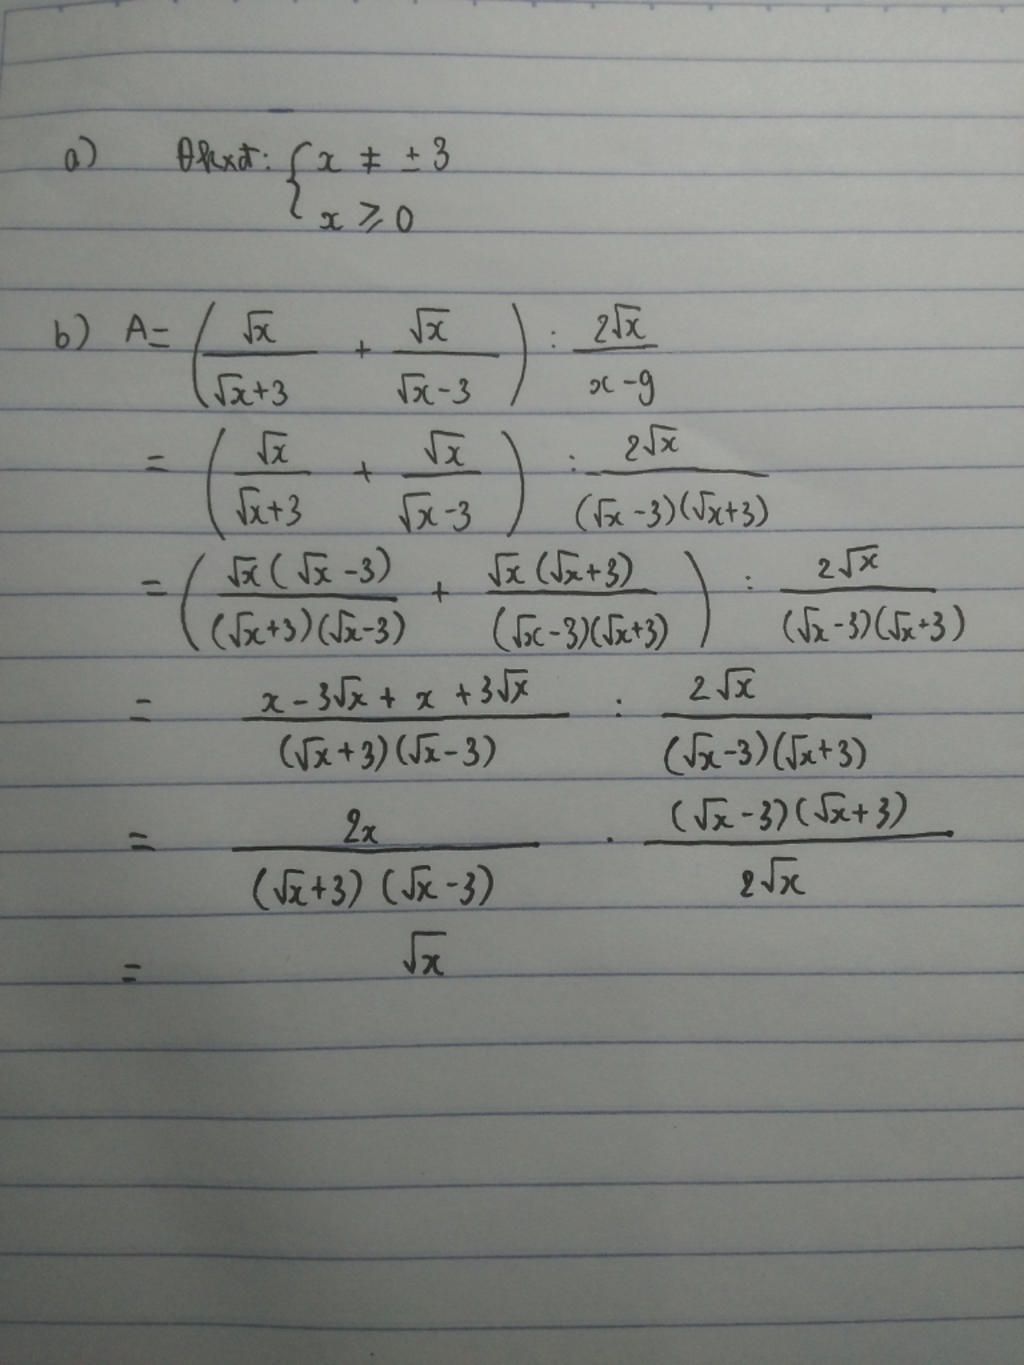 a) Đkxđ: { x ≠ ± 3
x ⩾ 0
b) A = ( √x / (√x+3) + √x / (√x-3) ) : 2√x / (x-9)
= ( √x / (√x+3) + √x / (√x-3) ) : 2√x / ((√x-3)(√x+3))
= ( √x(√x-3) / ((√x+3)(√x-3)) + √x(√x+3) / ((√x-3)(√x+3)) ) : 2√x / ((√x-3)(√x+3))
= (x-3√x + x +3√x) / ((√x+3)(√x-3)) : 2√x / ((√x-3)(√x+3))
= 2x / ((√x+3)(√x-3)) . (√x-3)(√x+3) / 2√x
= √x